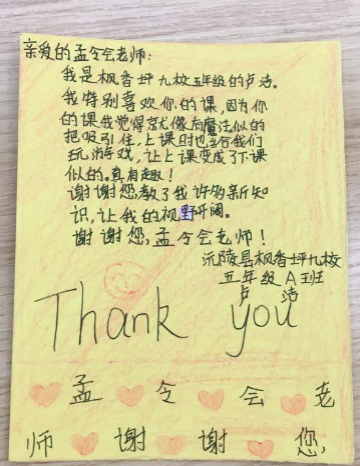 亲爱的孟令会老师:
我是枫香坪九校五年级的卢洁。
我特别喜欢你的课,因为你
的课我觉得就像有魔法似的
把吸引住,上课时也会给我们
玩游戏,让上课变成了下课
似的。真有趣!
谢谢您,教了我许多新知
识,让我的视野开阔。
谢谢您,孟令会老师!
沅陵县枫香坪九校
五年级A班
卢洁
Thank you
孟令会老
师谢谢您,